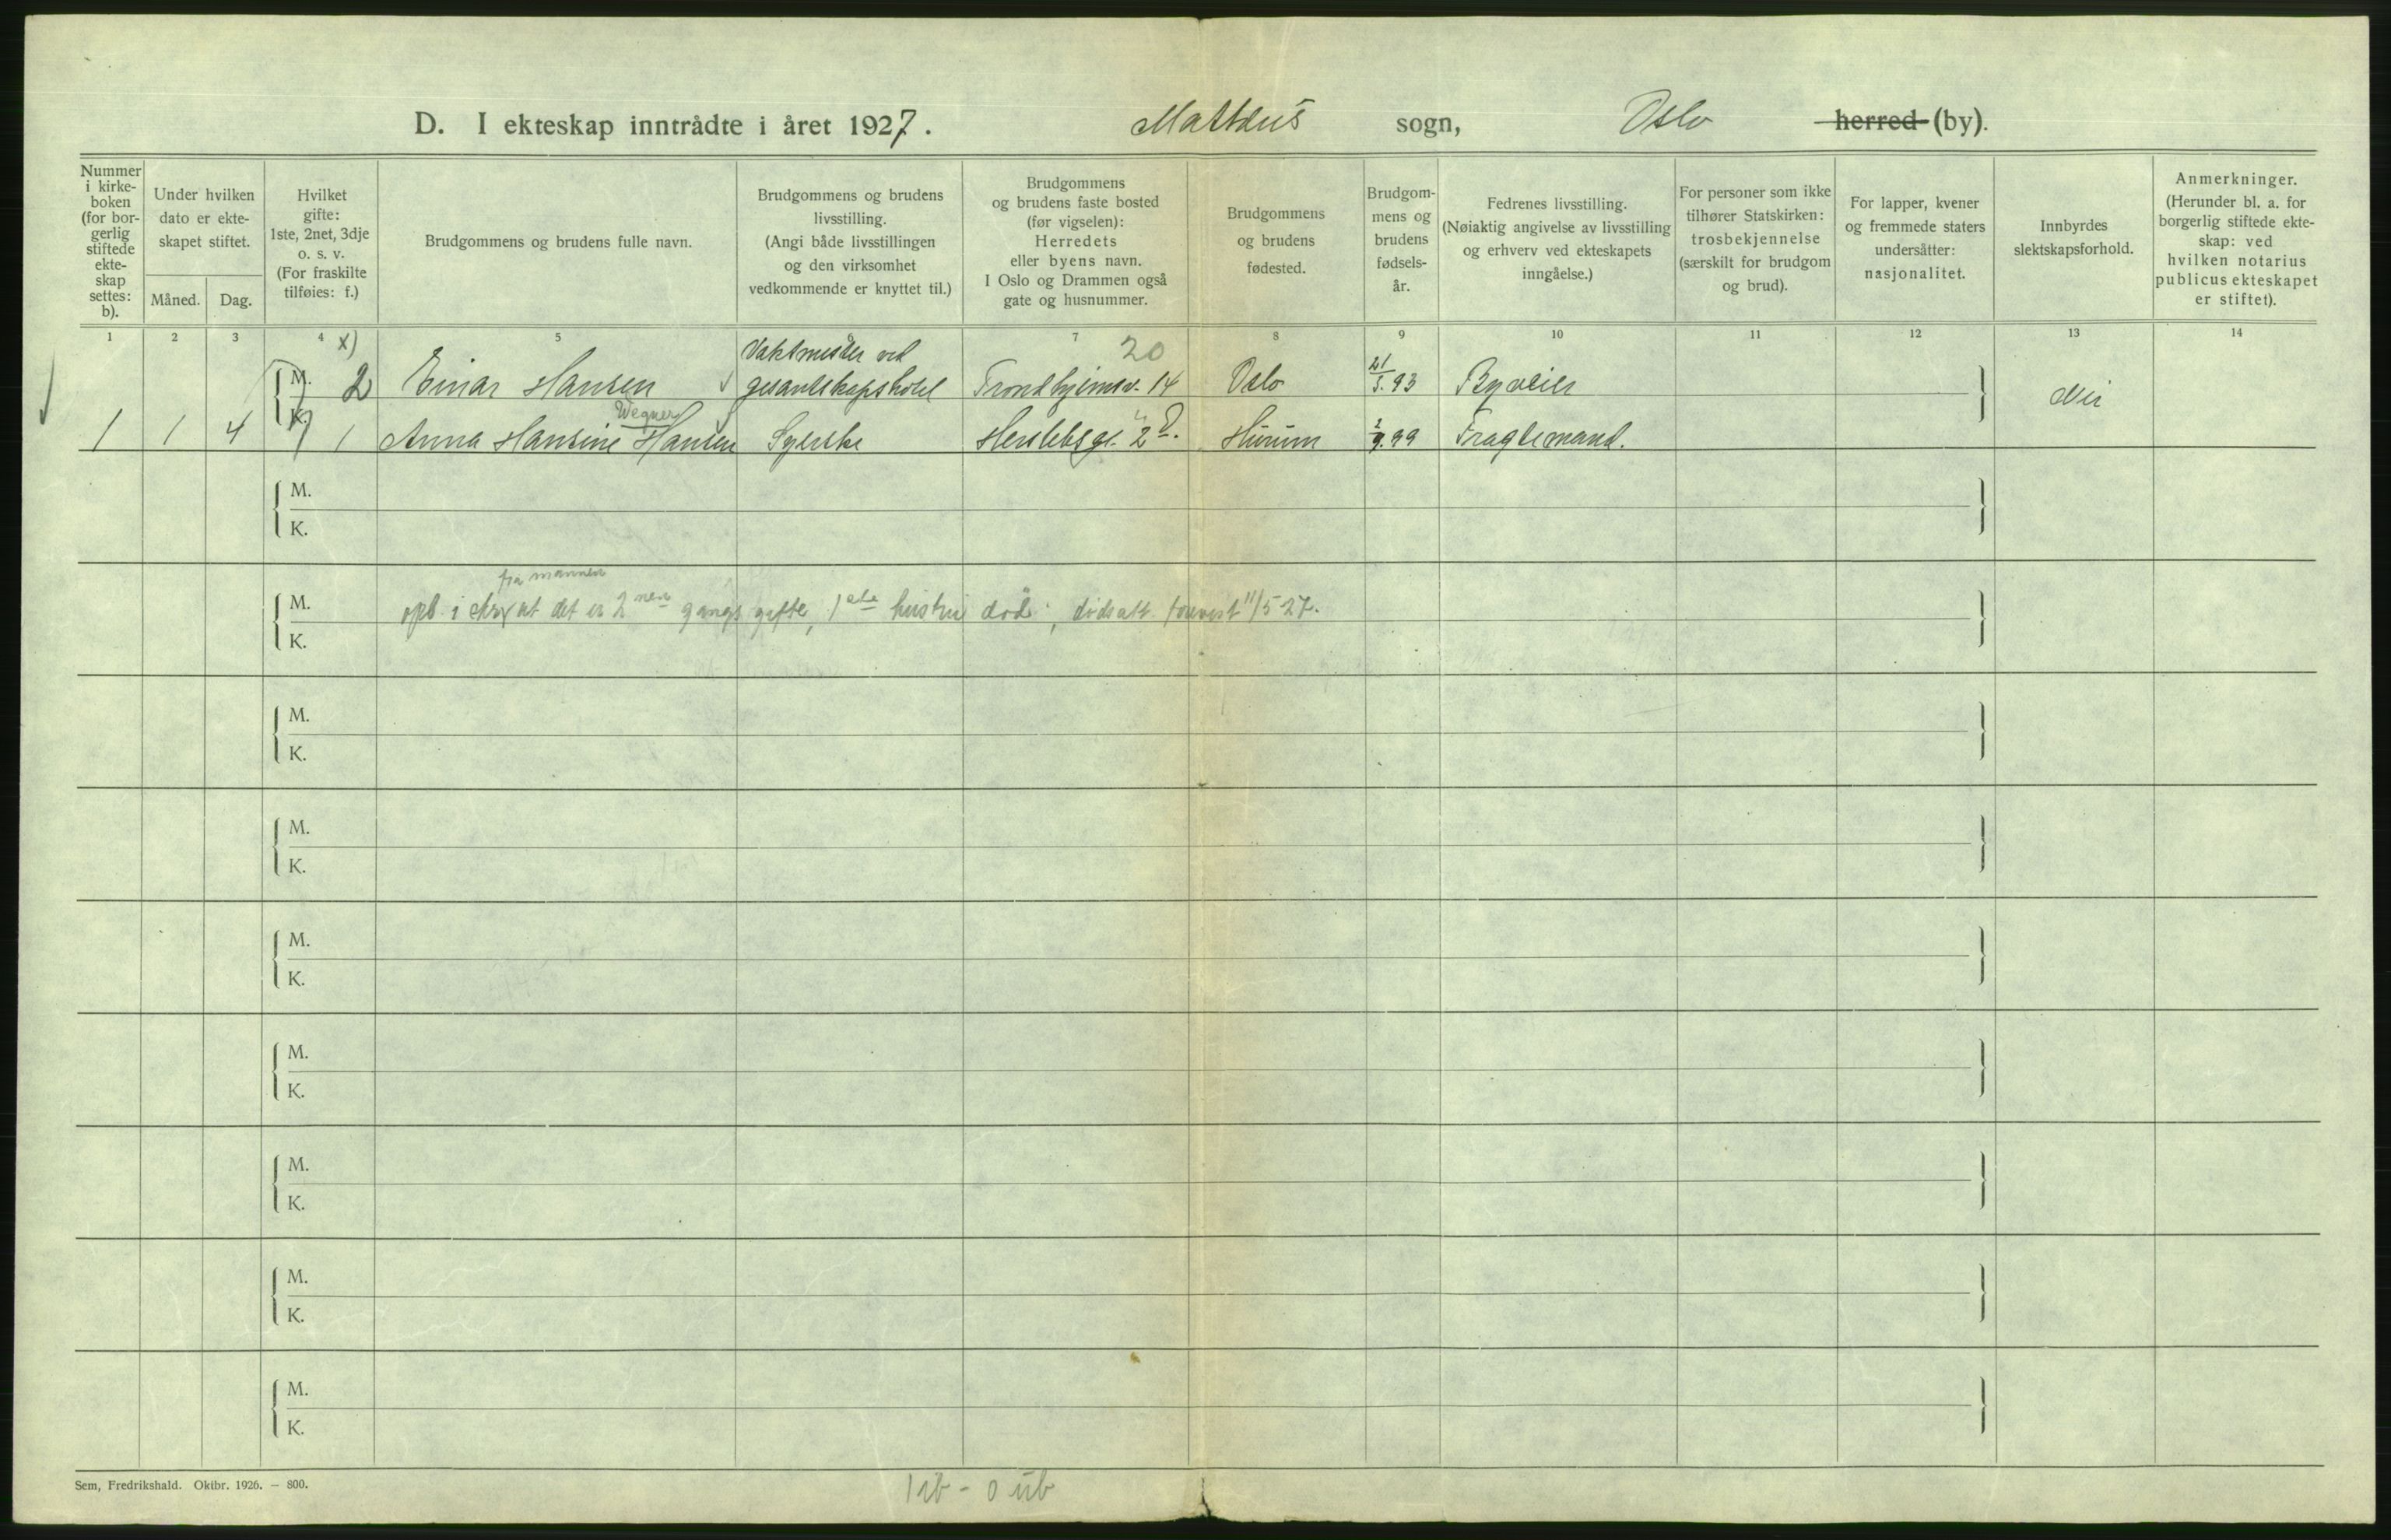 D. I ekteskap inntrådte i året 1927. Mattæus sogn, Oslo herred (by).
Nummer i kirke-boken (for bor-gerlig stiftede ekte-skap settes: b).
Under hvilken dato er ekte-skapet stiftet.
Måned. Dag.
Hvilket gifte: 1ste, 2net, 3dje o. s. v. (For fraskilte tilføies: f.)
Brudgommens og brudens fulle navn.
Brudgommens og brudens livsstilling. (Angi både livsstillingen og den virksomhet vedkommende er knyttet til.)
Brudgommens og brudens faste bosted (før vigselen): Herredets eller byens navn. I Oslo og Drammen også gate og husnummer.
Brudgommens og brudens fødested.
Brudgom-mens og brudens fødsels-år.
Fedrenes livsstilling. (Nøiaktig angivelse av livsstilling og erhverv ved ekteskapets inngåelse.)
For personer som ikke tilhører Statskirken: trosbekjennelse (særskilt for brudgom og brud).
For lapper, kvener og fremmede staters undersåtter: nasjonalitet.
Innbyrdes slektskapsforhold.
Anmerkninger. (Herunder bl. a. for borgerlig stiftede ekte-skap: ved hvilken notarius publicus ekteskapet er stiftet).
1 2 3 4 5 6 7 8 9 10 11 12 13 14
x) Vaktmester ved 20
M. 2 Einar Hansen gesantskapshotel Trondhjemsv. 14 Oslo 21/5. 93 Nei
Wegner
K. 1 1 4 1 Anna Hansine Hansen Syerske Herslebsgt. 2 Hurum 2/9. 99 Fragtemand.
M.
K.
fra mannen
M. opl. i at det er 2nen gangs gifte, 1ste hustru død; dødsatt. 11/5 27.
K.
M.
K.
M.
K.
M.
K.
M.
K.
M.
K.
M.
K.
M.
K.
Sem, Fredrikshald. Oktbr. 1926. — 800.
1 ib - 0 ub